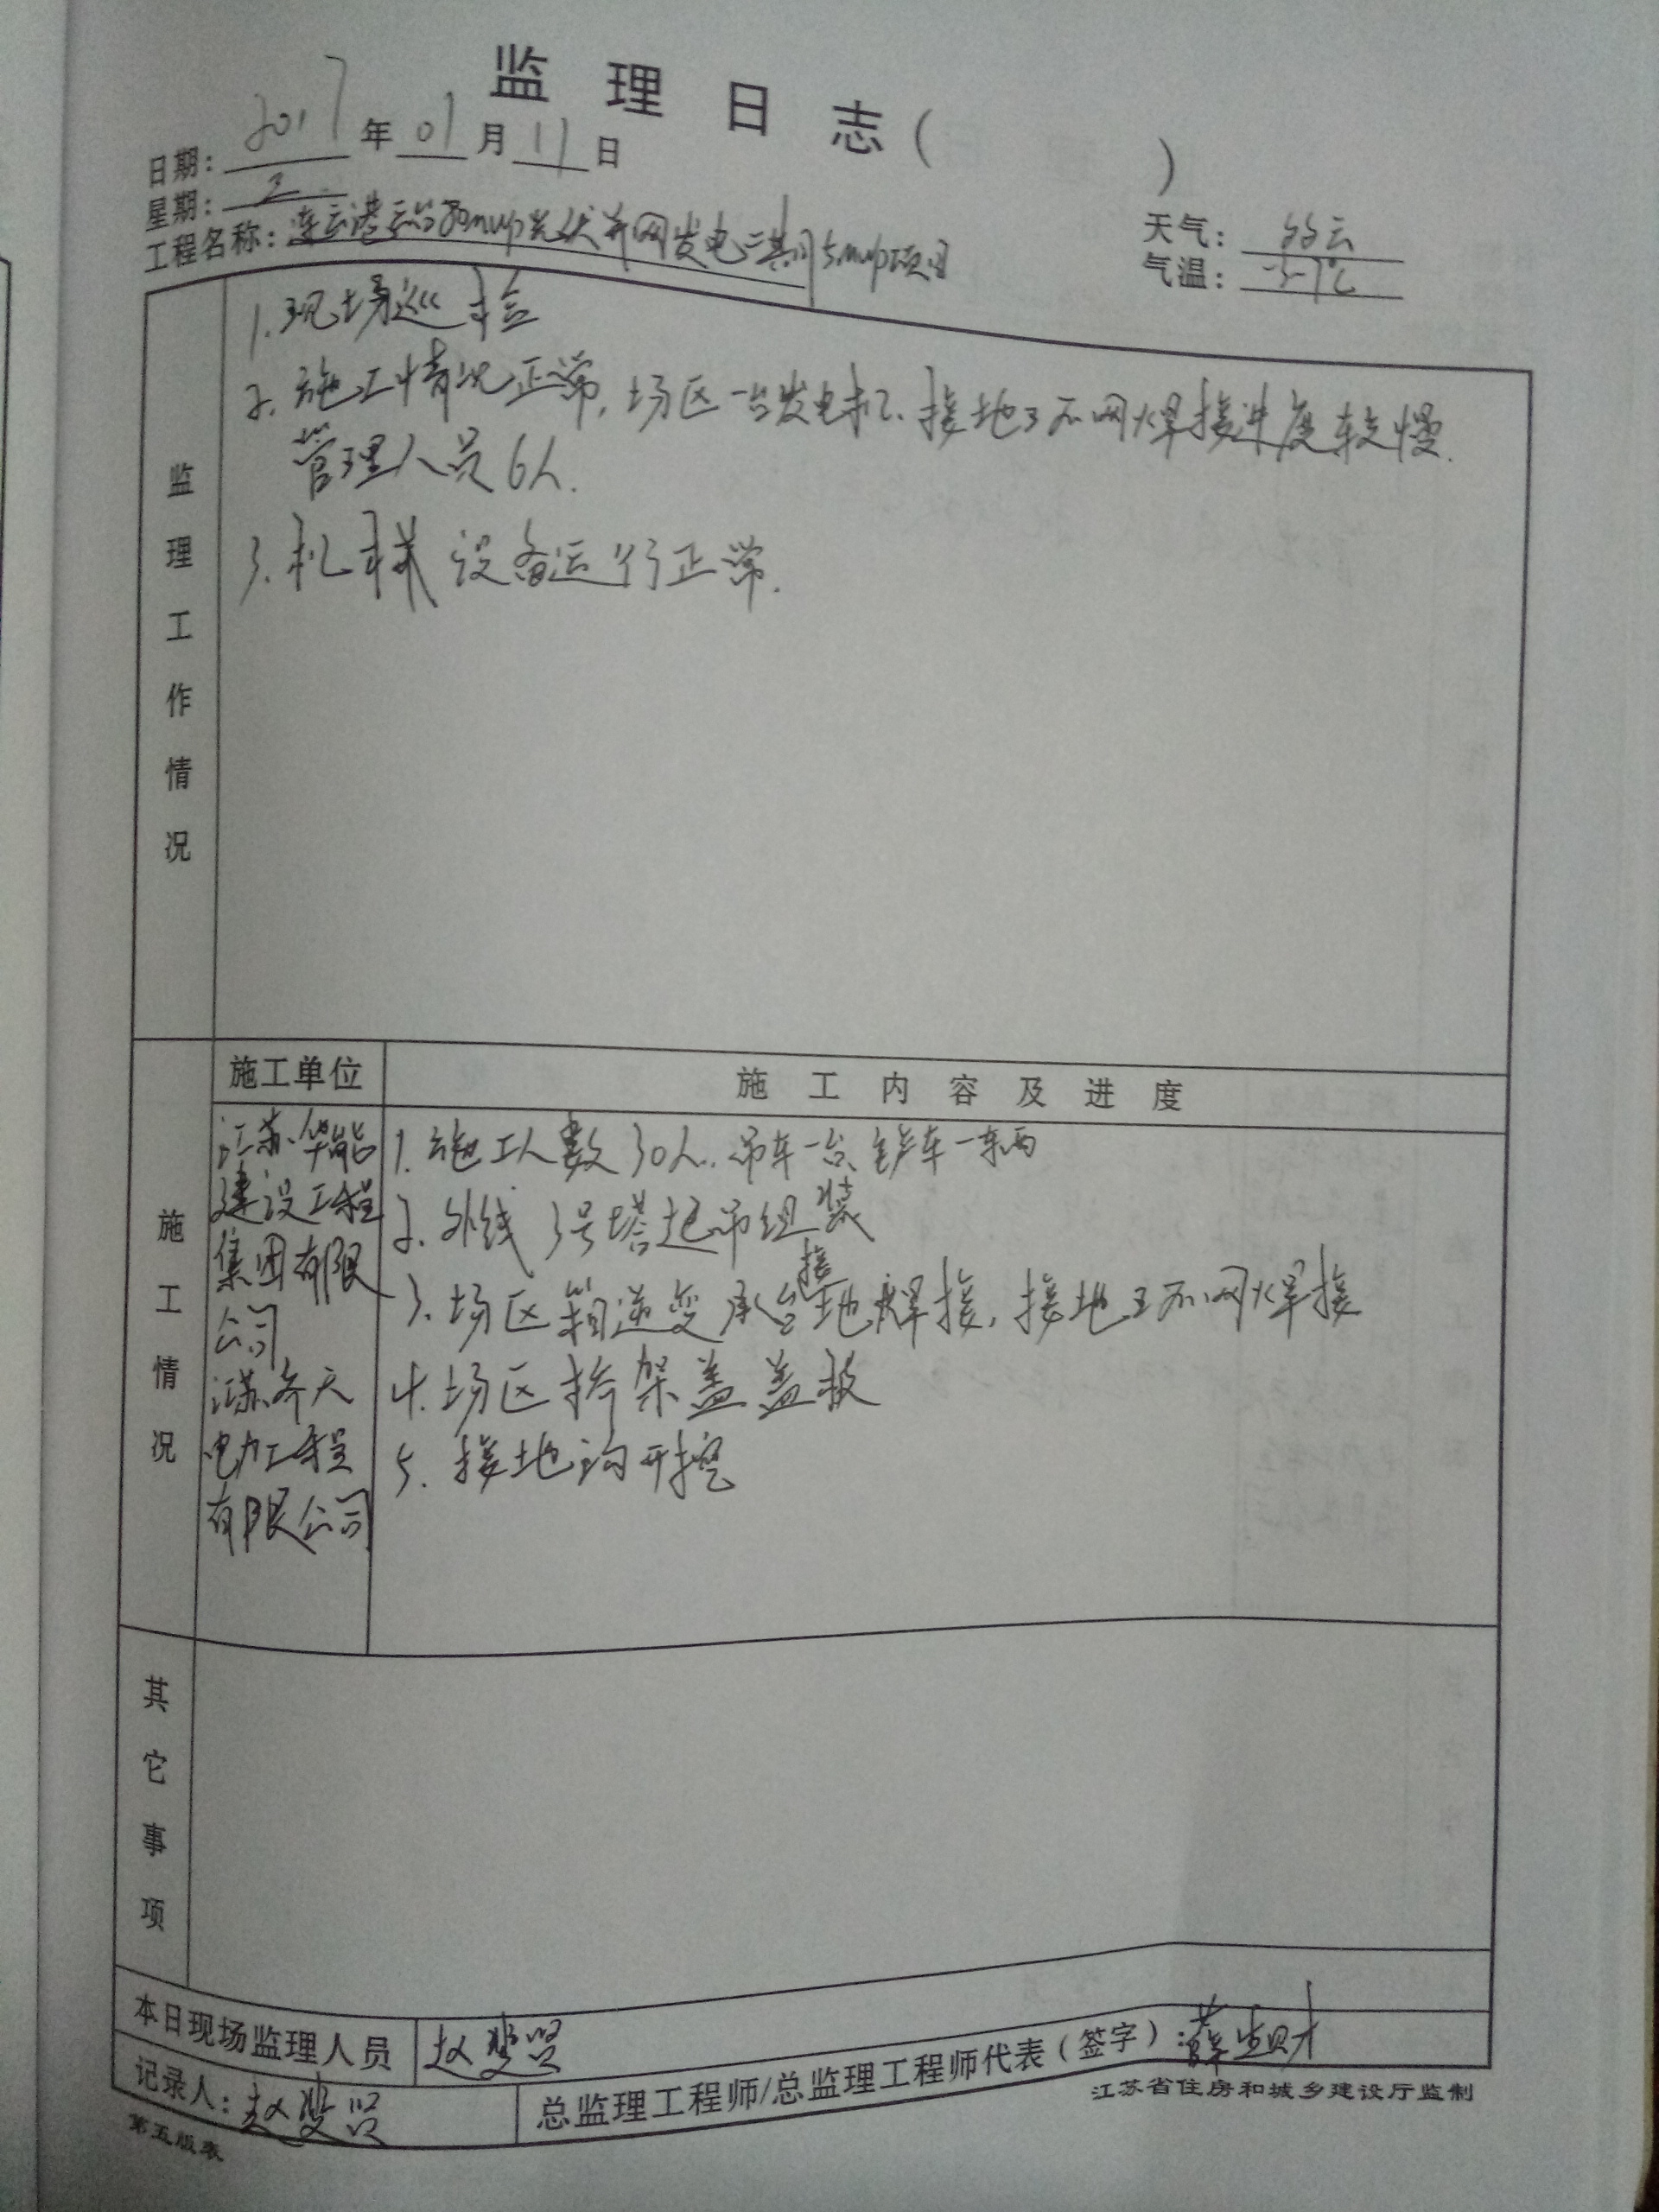 监理日志( )
日期: 2017 年 01 月 11 日
星期: 2
天气: 多云
工程名称: 连云港云台 光伏并网发电二期 5mwp项目
气温:
监理工作情况
1. 现场巡检
2. 施工情况正常,场区一台发电机、接地环网焊接进度较慢.
管理人员6人.
3. 机械设备运行正常.
施工情况
施工单位
施工内容及进度
江苏华能
建设工程
集团有限
公司
江苏齐天
电力工程
有限公司
1. 施工人数30人. 吊车一台、铲车一辆
2. 外线3号塔起吊组装
3. 场区箱逆变承台接地焊接,接地环网焊接
4. 场区桥架盖盖板
5. 接地沟开挖
其它事项
本日现场监理人员 赵
记录人: 赵
总监理工程师/总监理工程师代表(签字): 薛生财
江苏省住房和城乡建设厅监制
第五版表